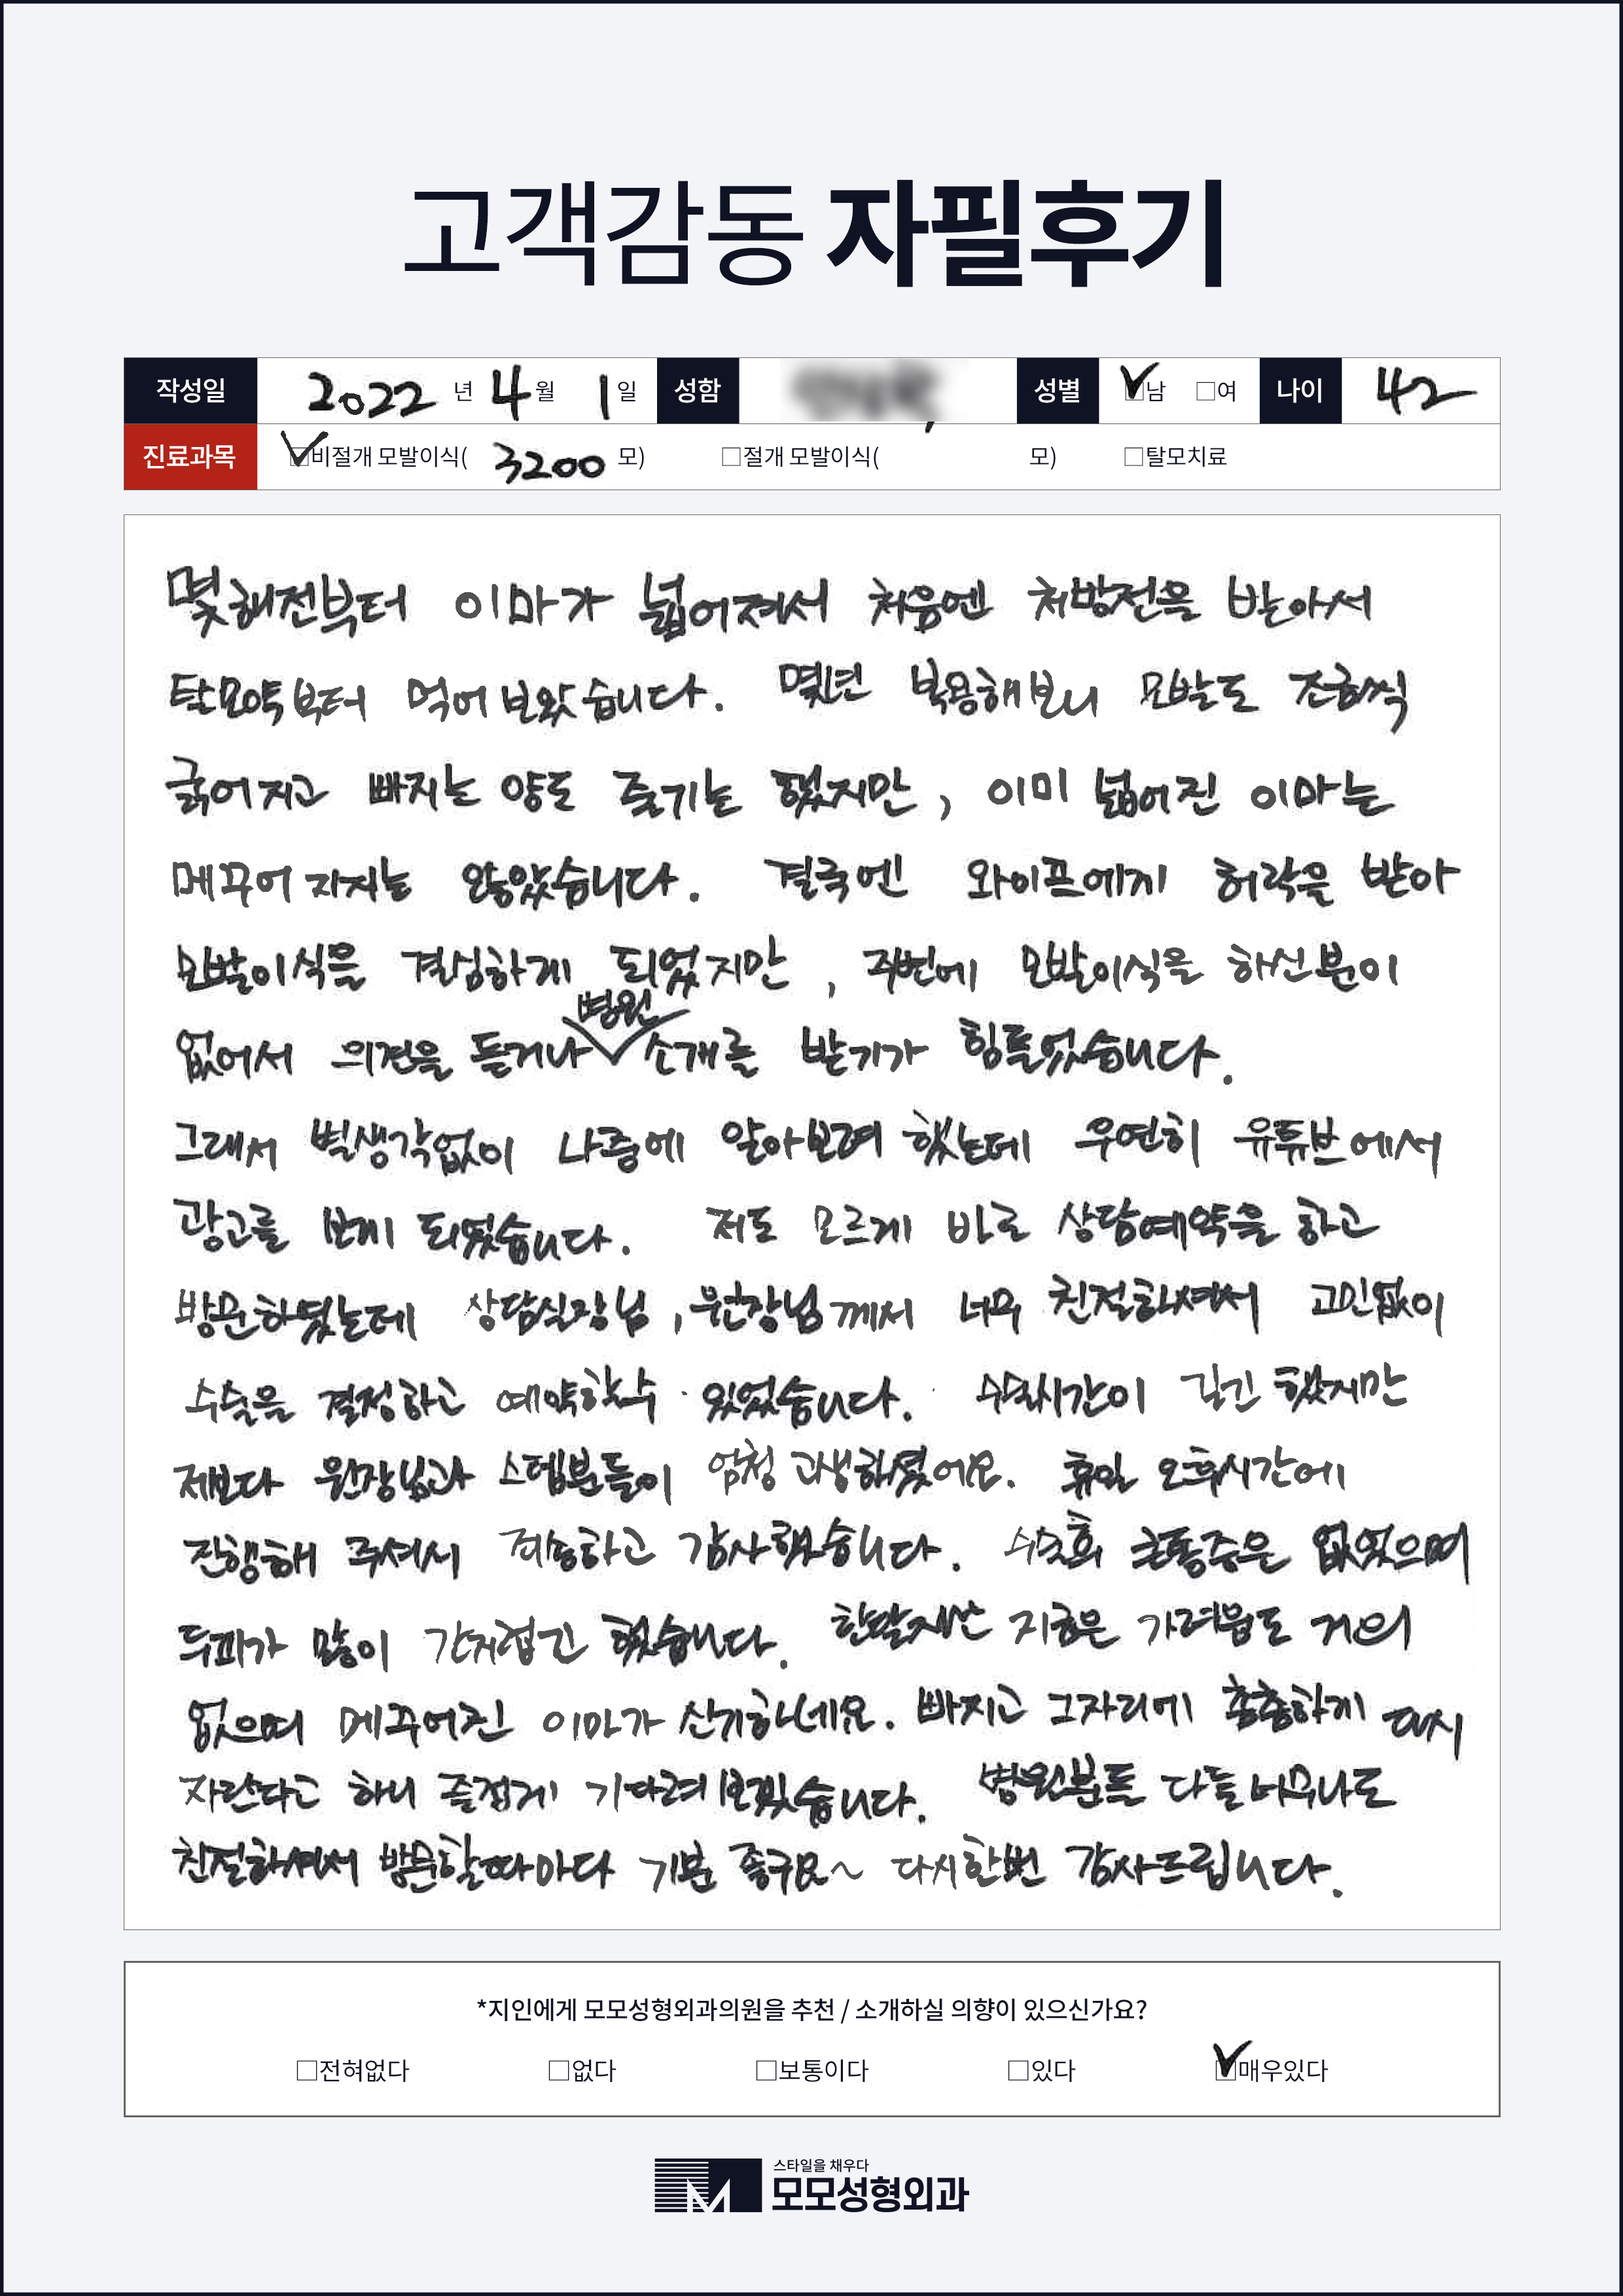 고객감동 자필후기
작성일 2022 년 4 월 1 일 성함 성별 ☑남 □여 나이 42
진료과목 ☑비절개 모발이식( 3200 모) □절개 모발이식( 모) □탈모치료
몇해전부터 이마가 넓어져서 처음엔 처방전을 받아서
탈모약부터 먹어 보았습니다. 몇년 복용해보니 모발도 조금씩
굵어지고 빠지는 양도 줄기는 했지만, 이미 넓어진 이마는
메꾸어 지지는 않았습니다. 결국엔 와이프에게 허락을 받아
모발이식을 결심하게 되었지만, 주변에 모발이식을 하신분이
없어서 의견을 듣거나 병원 소개를 받기가 힘들었습니다.
그래서 별생각없이 나중에 알아보려 했는데 우연히 유튜브에서
광고를 보게 되었습니다. 저도 모르게 바로 상담예약을 하고
방문하였는데 상담실장님, 원장님께서 너무 친절하셔서 고민없이
수술을 결정하고 예약할수 있었습니다. 수술시간이 길긴 했지만
제보다 원장님과 스텝분들이 엄청 고생하셨어요. 휴일 오후시간에
진행해 주셔서 죄송하고 감사했습니다. 수술후 큰통증은 없었으며
두피가 많이 간지럽긴 했습니다. 한달째인 지금은 가려움도 거의
없으며 메꾸어진 이마가 신기하네요. 빠지고 그자리에 촘촘하게 다시
자란다고 하니 즐겁게 기다려보겠습니다. 병원분들 다들 너무나도
친절하셔서 방문할때마다 기분 좋구요~ 다시한번 감사드립니다.
*지인에게 모모성형외과의원을 추천 / 소개하실 의향이 있으신가요?
□전혀없다 □없다 □보통이다 □있다 ☑매우있다
스타일을 채우다
모모성형외과